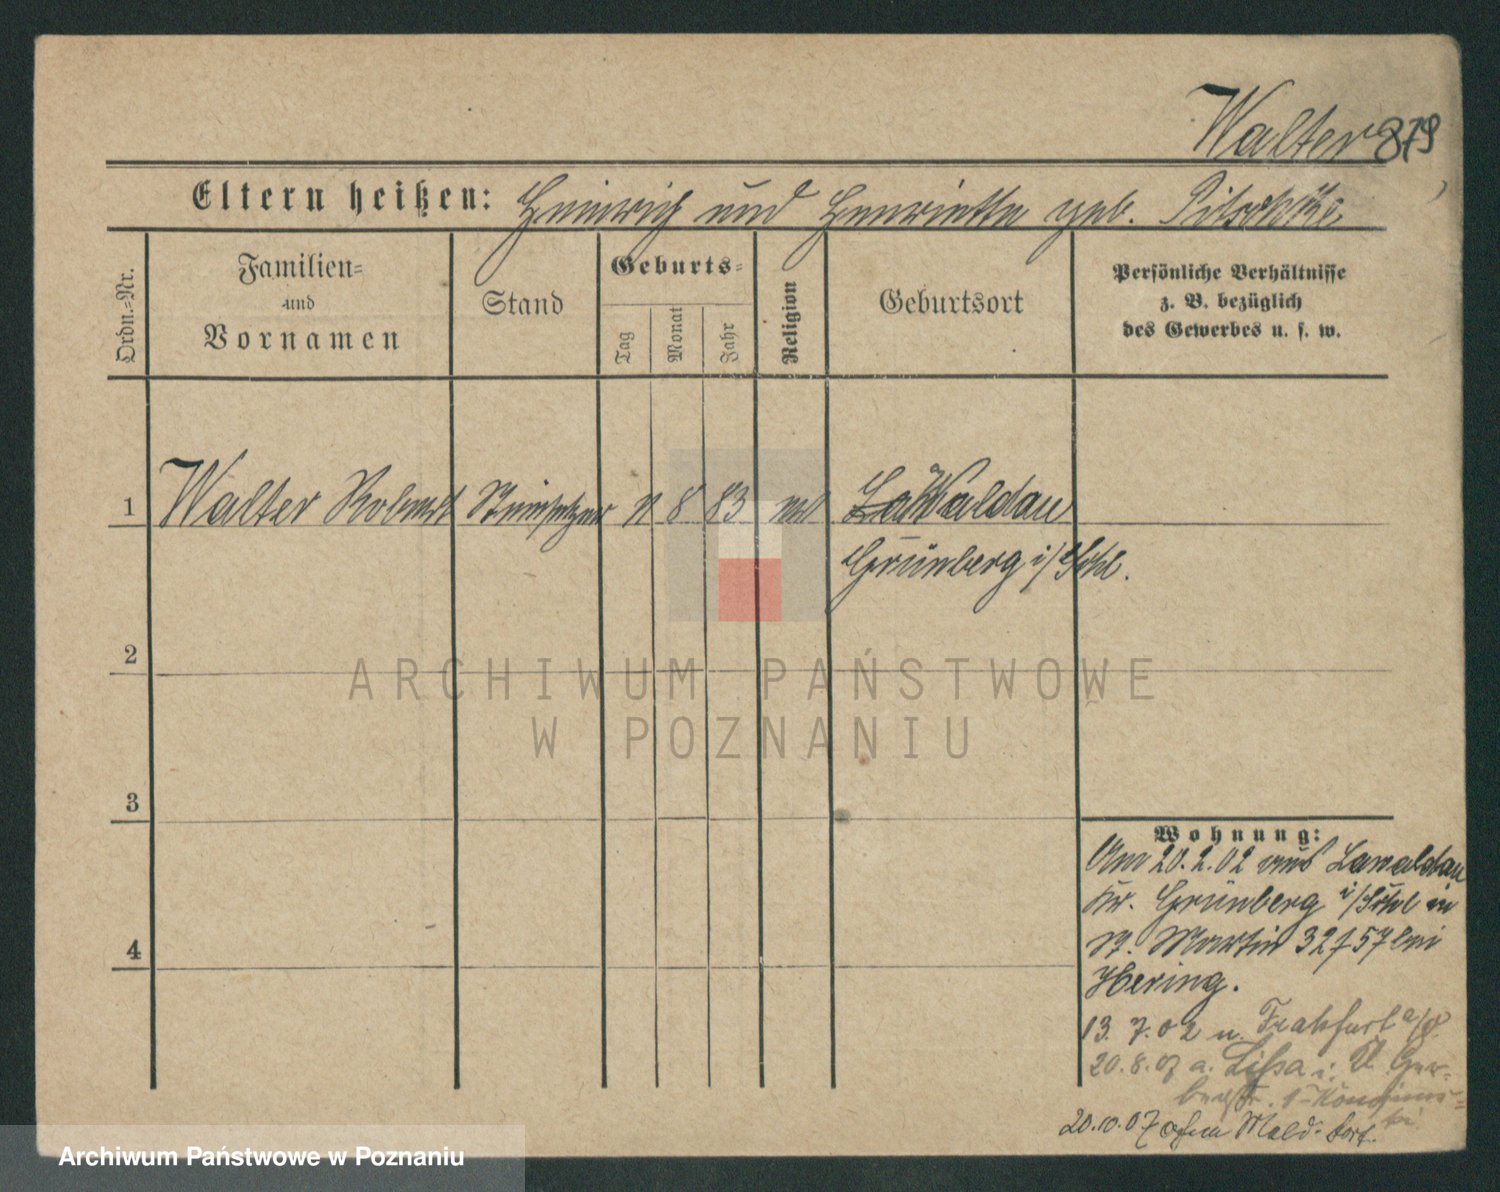 Walter 879
Eltern heißen: Heinrich und Henriette geb.
Ordn.=Nr.
Familien=
und
Vornamen
Stand
Geburts=
Tag
Monat
Jahr
Religion
Geburtsort
Persönliche Verhältnisse
z. B. bezüglich
des Gewerbes u. s. w.
1 Walter Robert Steinsetzer 11 8 83 Lawaldau
Grünberg i/Schl.
2
3
4
Wohnung:
Am 20.2.02 aus Lawaldau
Kr. Grünberg i/Schl in
St. Martin 32 bei
Hering.
13.7.02 n. Frakfurt a/O.
20.8.07 a. Lissa i. P.
20.10.07 ohne Meld. fort.
ARCHIWUM PAŃSTWOWE
W POZNANIU
Archiwum Państwowe w Poznaniu